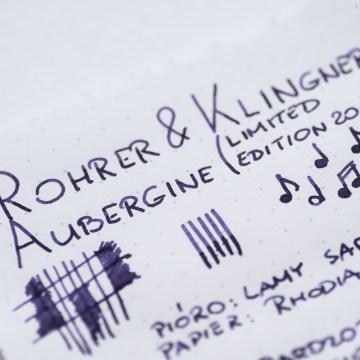 ROHRER & KLINGNER
AUBERGINE (LIMITED
EDITION 20
PIÓRO: LAMY SAF
PAPIER: RHODIA